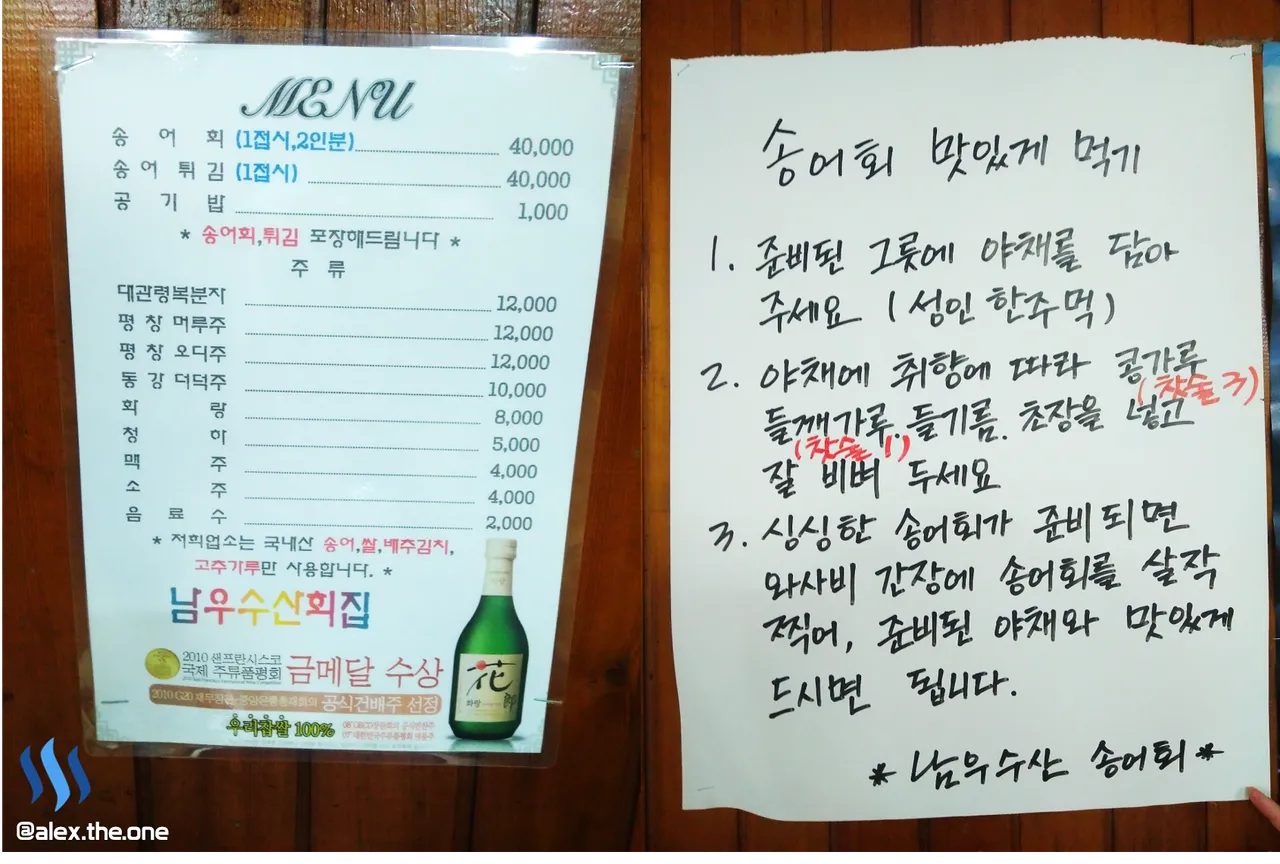 MENU
송어회 (1접시,2인분) 40,000
송어튀김 (1접시) 40,000
공기밥 1,000
* 송어회,튀김 포장해드립니다 *
주류
대관령복분자 12,000
평창머루주 12,000
평창오디주 12,000
동강더덕주 10,000
화랑 8,000
청하 5,000
맥주 4,000
소주 4,000
음료수 2,000
* 저희업소는 국내산 송어,쌀,배추김치,
고추가루만 사용합니다. *
남우수산회집
2010 샌프란시스코
국제 주류품평회 금메달 수상
공식건배주 선정
우리찹쌀 100%
花郞
화랑
@alex.the.one
송어회 맛있게 먹기
1. 준비된 그릇에 야채를 담아
주세요 (성인 한주먹)
2. 야채에 취향에 따라 콩가루
(찻술 3)
들깨가루. 들기름. 초장을 넣고
(찻술 1)
잘 비벼 두세요
3. 싱싱한 송어회가 준비되면
와사비 간장에 송어회를 살작
찍어, 준비된 야채와 맛있게
드시면 됩니다.
* 남우수산 송어회 *